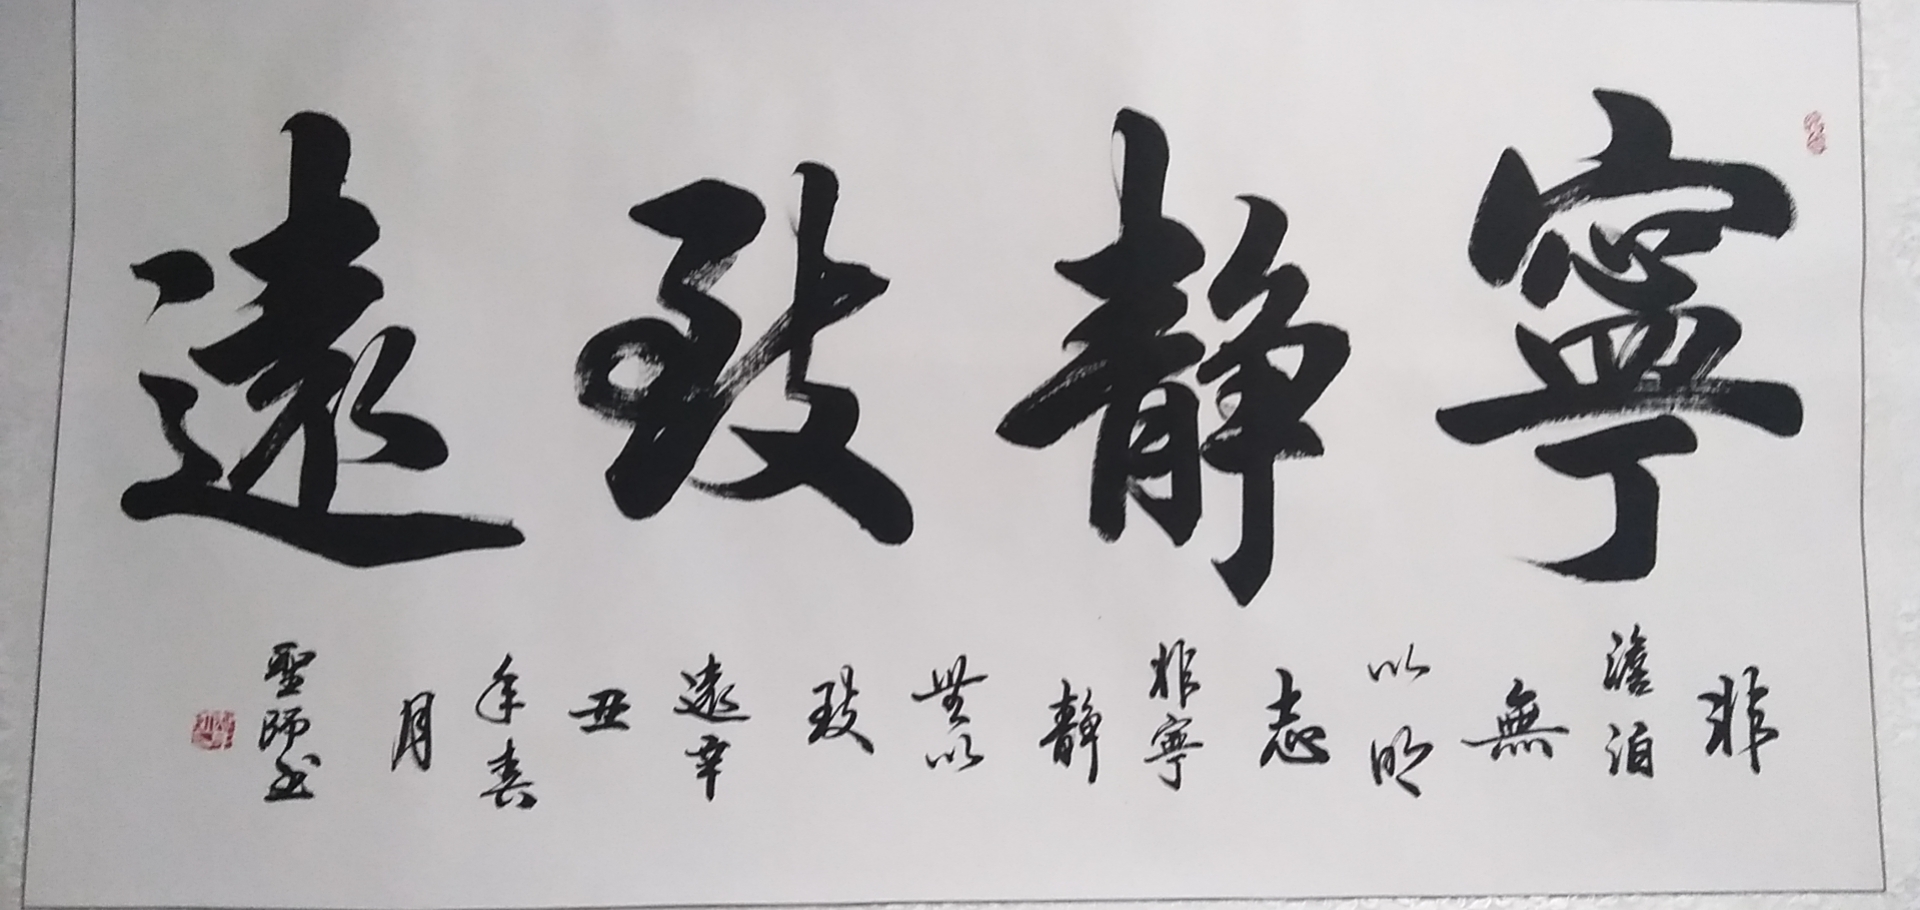 寧静致遠
非澹泊無以明志非寧静無以致遠辛丑年春月
聖師书